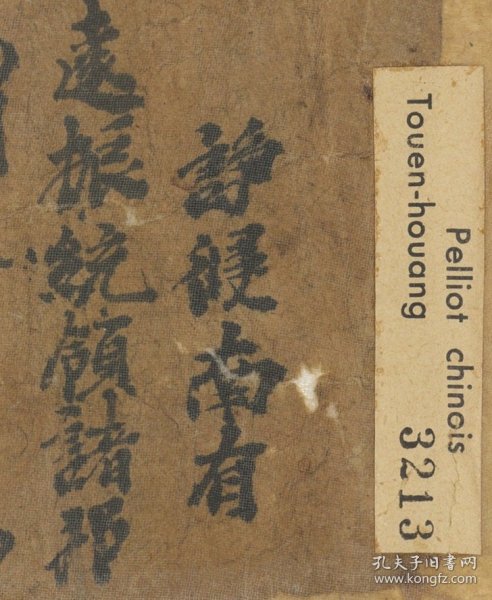 諍侵南有
遠振統領諸邦
Pelliot chinois
Touen-houang
3213
孔夫子旧书网
www.kongfz.com